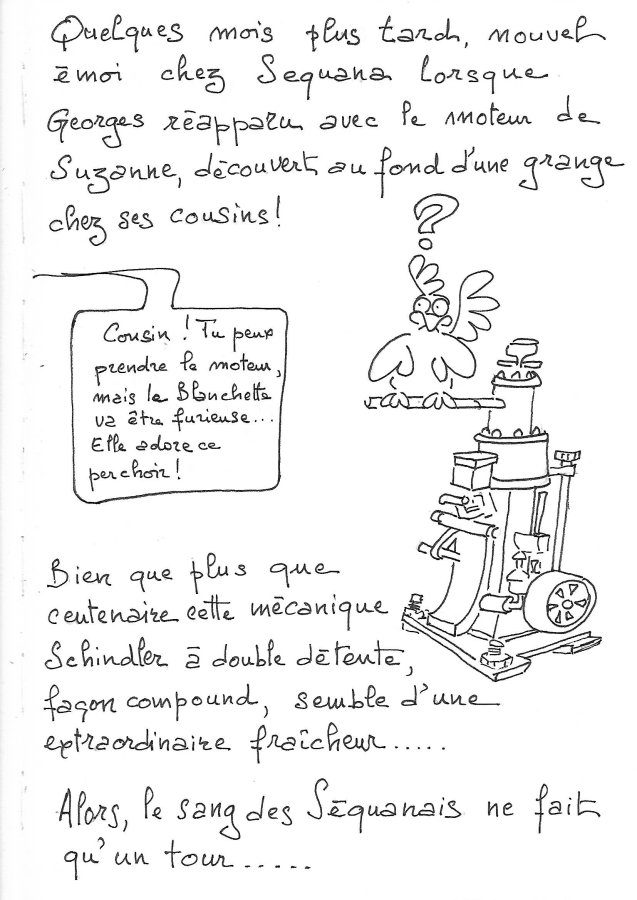 Quelques mois plus tard, nouvel
émoi chez Sequana lorsque
Georges réapparu avec le moteur de
Suzanne, découvert au fond d'une grange
chez ses cousins!
?
Cousin ! Tu peux
prendre le moteur,
mais la Blanchette
va être furieuse...
Elle adore ce
perchoir!
Bien que plus que
centenaire cette mécanique
Schindler à double détente,
façon compound, semble d'une
extraordinaire fraîcheur.....
Alors, le sang des Séquanais ne fait
qu'un tour.....